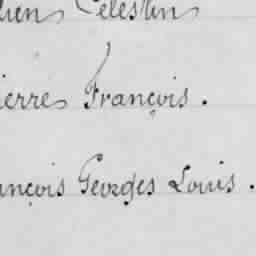 lien Célestin
ierre François.
ançois Georges Louis.